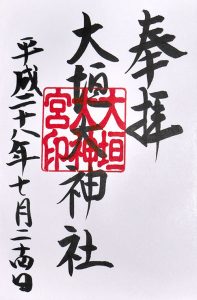 奉拝
大垣大神社
平成二十八年七月二十四日
大垣
大神
宮印